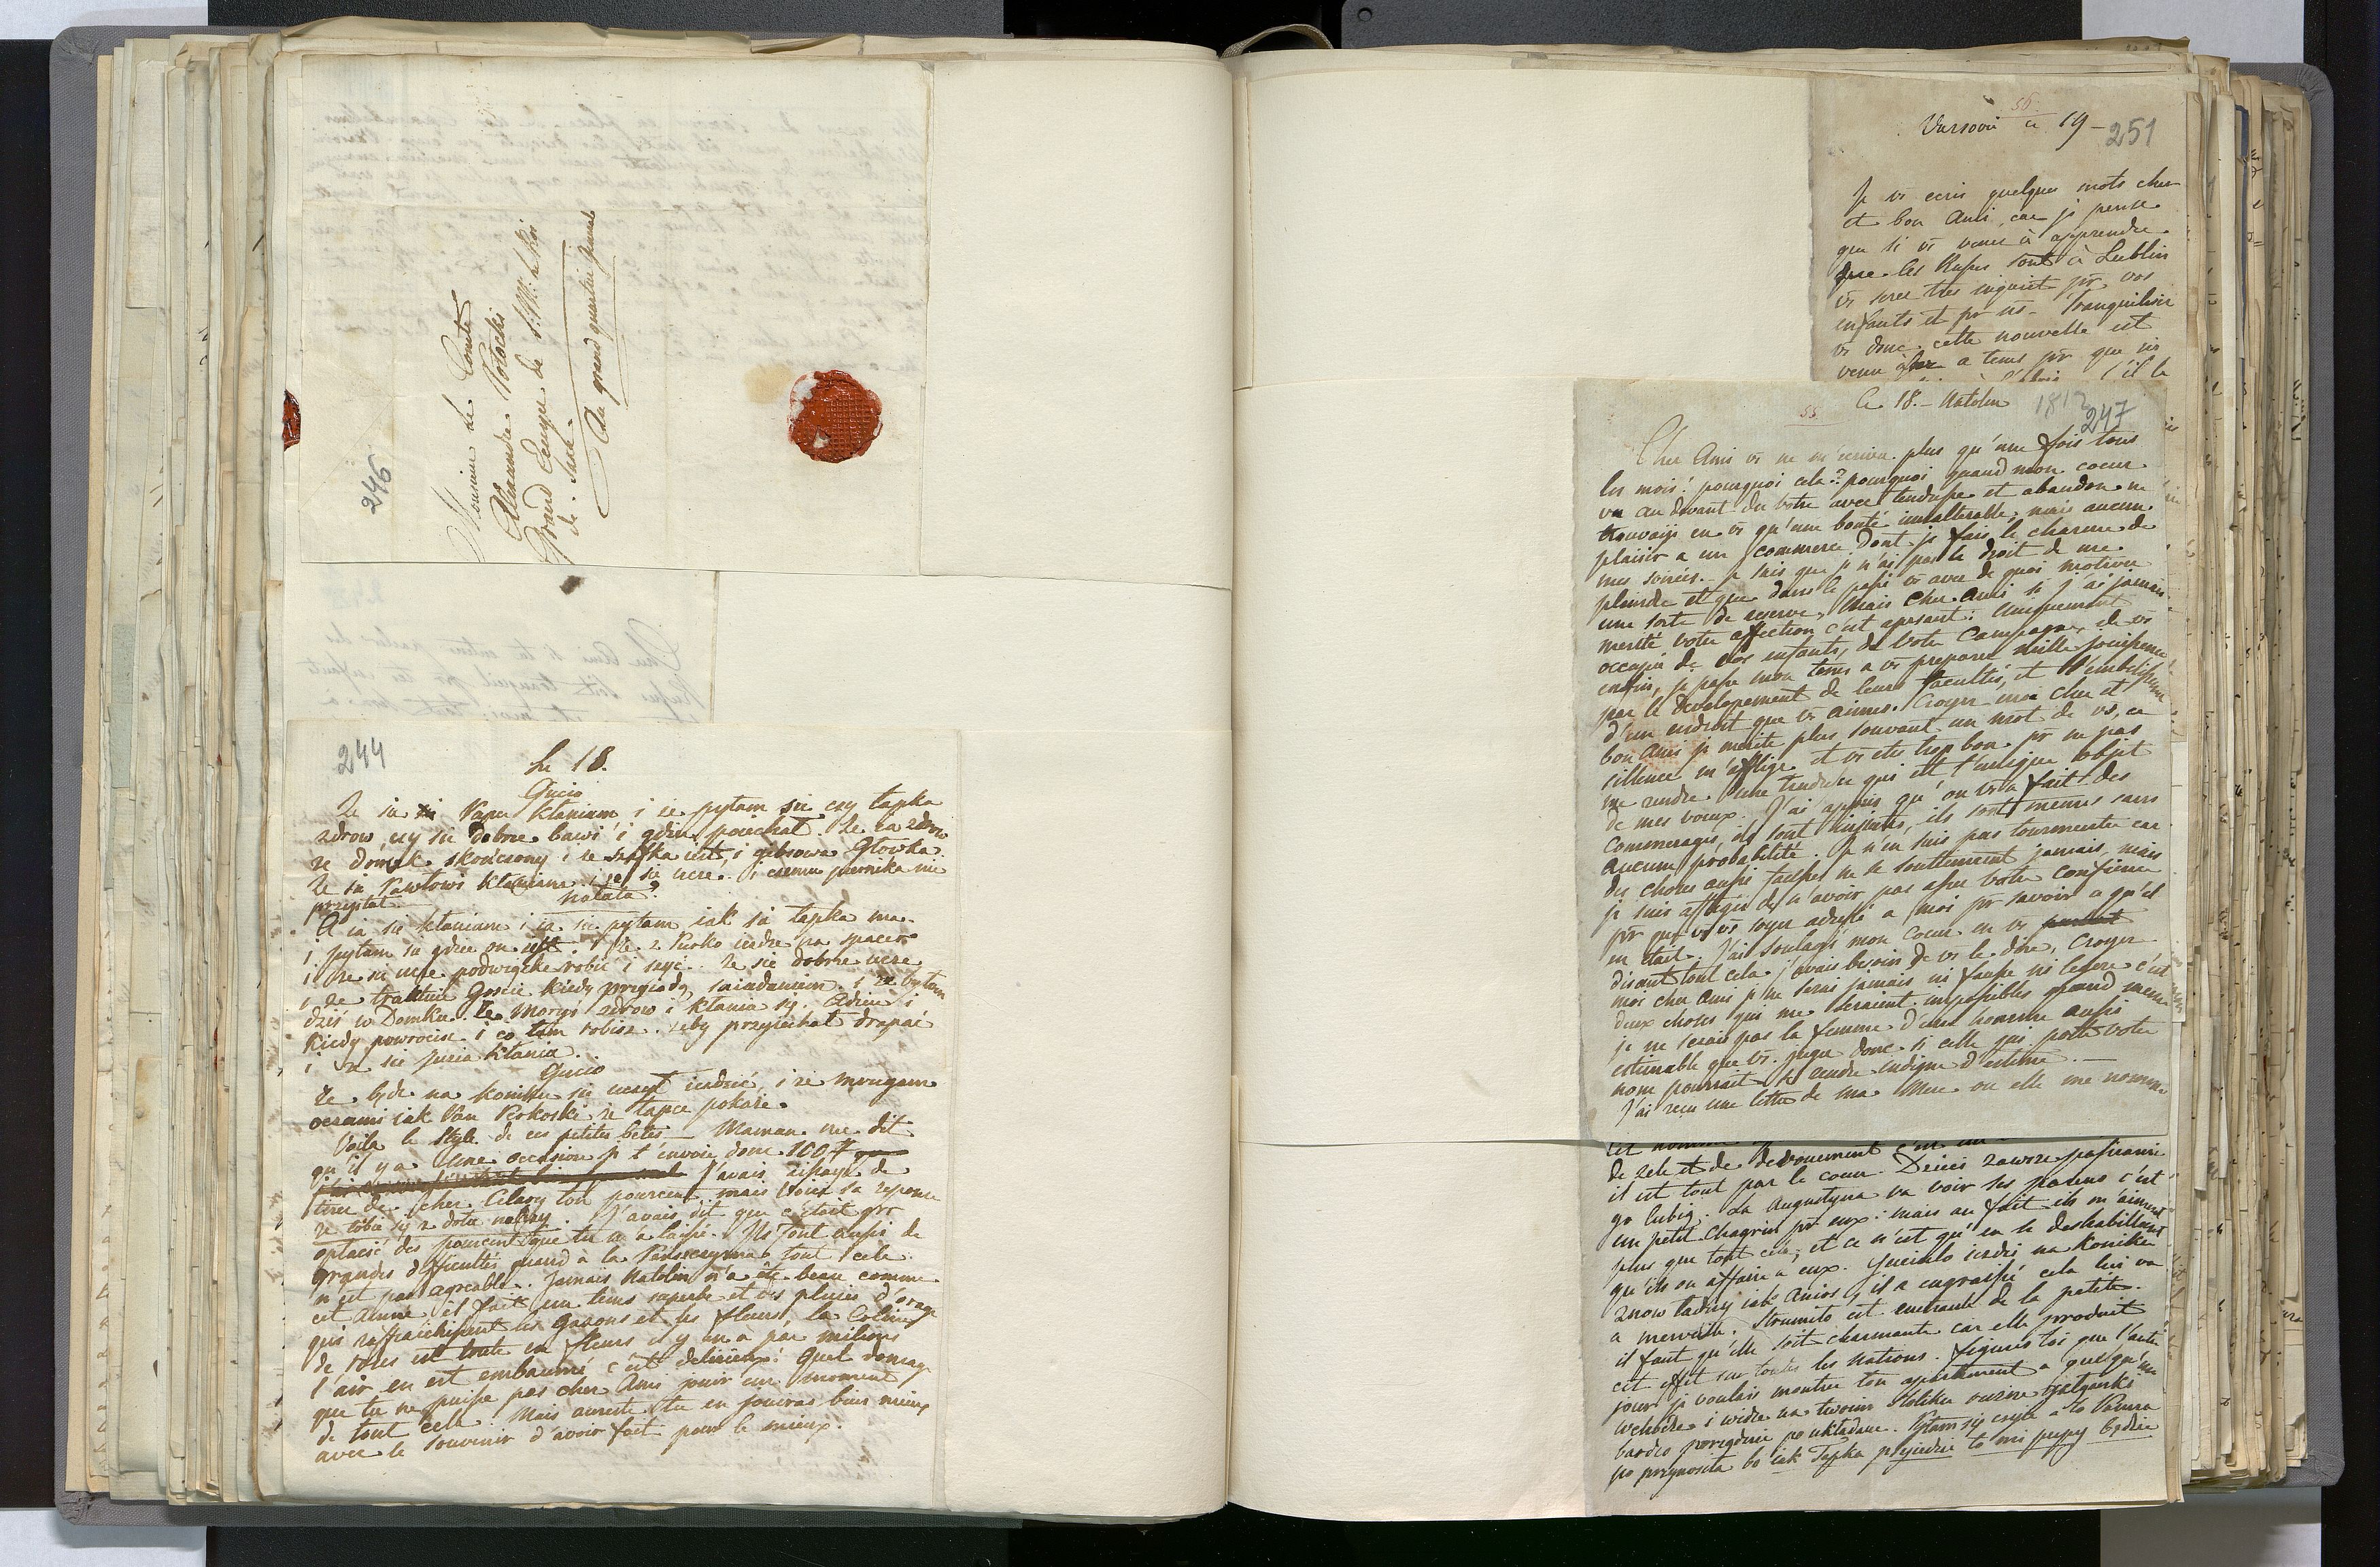 246
Monsieur le Comte
Alexandre Potocki
Grand Ecuyer de S. M. le Roi
de Saxe.
Au grand quartier general
244
Le 18.
Gucio
Ze ia Papu kłaniam i ze pytam się czy tapka
zdrow, czy się dobrze bawi i gdzie poiechał. Ze ia zdrow
ze domek skończony i ze szafka iest, i gibsowa Głowka.
Ze się Pawłowi kłaniam i ze się ucze. i czemu piernika nie
przysłał.
Natata?
A ia się kłaniam i ia się pytam iak się tapka ma.
i pytam się gdzie on iest. i ze z Pusko iedze na spacer
i ze się ucze podwiązke robić i szyć. Ze się dobrze ucze
i ze traktuie Goscie kiedy przyiadą sniadaniem. i ze bytam
dziś w Domku. Ze Moryś zdrow i kłania się. Adieu i
kiedy powrocisz i co tam robisz. zeby przyiechał drapać
i ze się Jucia kłania.
Gucio
Ze będe na koniku się uczył iezdzić, i ze mrugam
oczami iak Pan Rokoski ze tapce pokaże.
Voila le style de ces petites betes — Maman me dit
qu'il y a une occasion je t'envoie donc 100 #
j'avais essayé de
tirer de cher Cilary ton pourcent mais voici sa reponse
ze tobie się z dołu należy. J'avais dit que c'etait pr
opłacić des pourcents que tu m'a laissé. Ils font aussi de
grandes difficultés quand à la Panszczyzna tout cela
n'est pas agreable. Jamais Natolin n'a été beau comme
cet année il fait un tems superbe et des pluies d'orage
qui raffraichissent les Gazons et les fleurs, la Coline
de roses est toute en fleurs il y en a par milions
l'air en est embaumé c'est delicieux! Quel domage
que tu ne puisse pas cher Ami jouir un moment
de tout cela. Mais aureste tu en jouiras bien mieux
avec le souvenir d'avoir fait pour le mieux.
56.
Varsovie ce 19 -
251
Je vs ecris quelques mots cher
et bon Ami, car je pense
que si vs venez à apprendre
que les Russes sont à Lublin
vs serez tres inquiet pr vos
enfants et pr ns - Tranquilisez
vs donc, cette nouvelle est
venu a tems pr que ns
s'il le
55.
Ce 18. - Natolin
1812
247
Cher Ami vs ne m'ecrivez plus qu'une fois tous
les mois! pourquoi cela? pourquoi quand mon coeur
va au devant du votre avec tendresse et abandon ne
trouvaije en vs qu'une bonté inalterable, mais aucun
plaisir a un commerce dont je fais le charme de
mes soirées. Je sais que je n'ai pas le droit de me
plaindre et que dans le passé vs avez de quoi motiver
une sorte de reserve. Mais cher Ami si j'ai jamais
merité votre affection c'est apresant: uniquement
occupée de vos enfants, de votre Campagne, de vs
enfin, je passe mon tems a vs preparer mille jouissances
par le developement de leurs facultés, et l'embelissement
d'un endroit que vs aimez. Croyez moi cher et
bon Ami je merite plus souvant un mot de vs, ce
sillence m'afflige et vs etes trop bon pr ne pas
me rendre une tendresse qui est l'unique objet
de mes voeux. J'ai appris qu'on vs a fait des
commerages, ils sont injustes, ils sont memes sans
aucune probabilité. Je n'en suis pas tourmentée car
des choses aussi fausses ne se soutiennent jamais, mais
je suis affligée de n'avoir pas assez votre confience
pr que vs vs soyez adressé a moi pr savoir a qu'il
en était. J'ai soulagé mon Coeur en vs
disant tout cela j'avais besoin de vs le dire, Croyez
moi cher Ami je ne serai jamais ni fausse ni legere c'est
deux choses qui me seraient impossibles quand meme
je ne serais pas la femme d'un homme aussi
estimable que vs. jugez donc si celle qui porte votre
nom pourrait se rendre indigne d'estime. —
J'ai reçu une lettre de ma Mere ou elle me nomme
de zele et de devouement
il est tout par le coeur. Dzieci zawsze passionnée
go lubią. La Augustyna va voir ses parens c'est
un petit chagrin pr eux: mais au fait ils m'aiment
plus que tout cela, et ce n'est qu'en se deshabillant
qu'ils on affaire a eux. Gucinlo iezdzi na koniku
znow ładny iak Anioł, il a engraissé cela lui va
a merveille. Strumiło est enchanté de la petite.
il faut qu'elle soit charmante car elle produit
cet effet sur toutes les Nations. figures toi que l'autre
jour je voulais montrer ton apartement a quelqu'un
wchodze i widze na twoim stoliku
bardzo porządnie poukładane. Pytam się czyie a to Panna
po przynosiła bo iak Tapka przyiedzie to mi pupy będzie